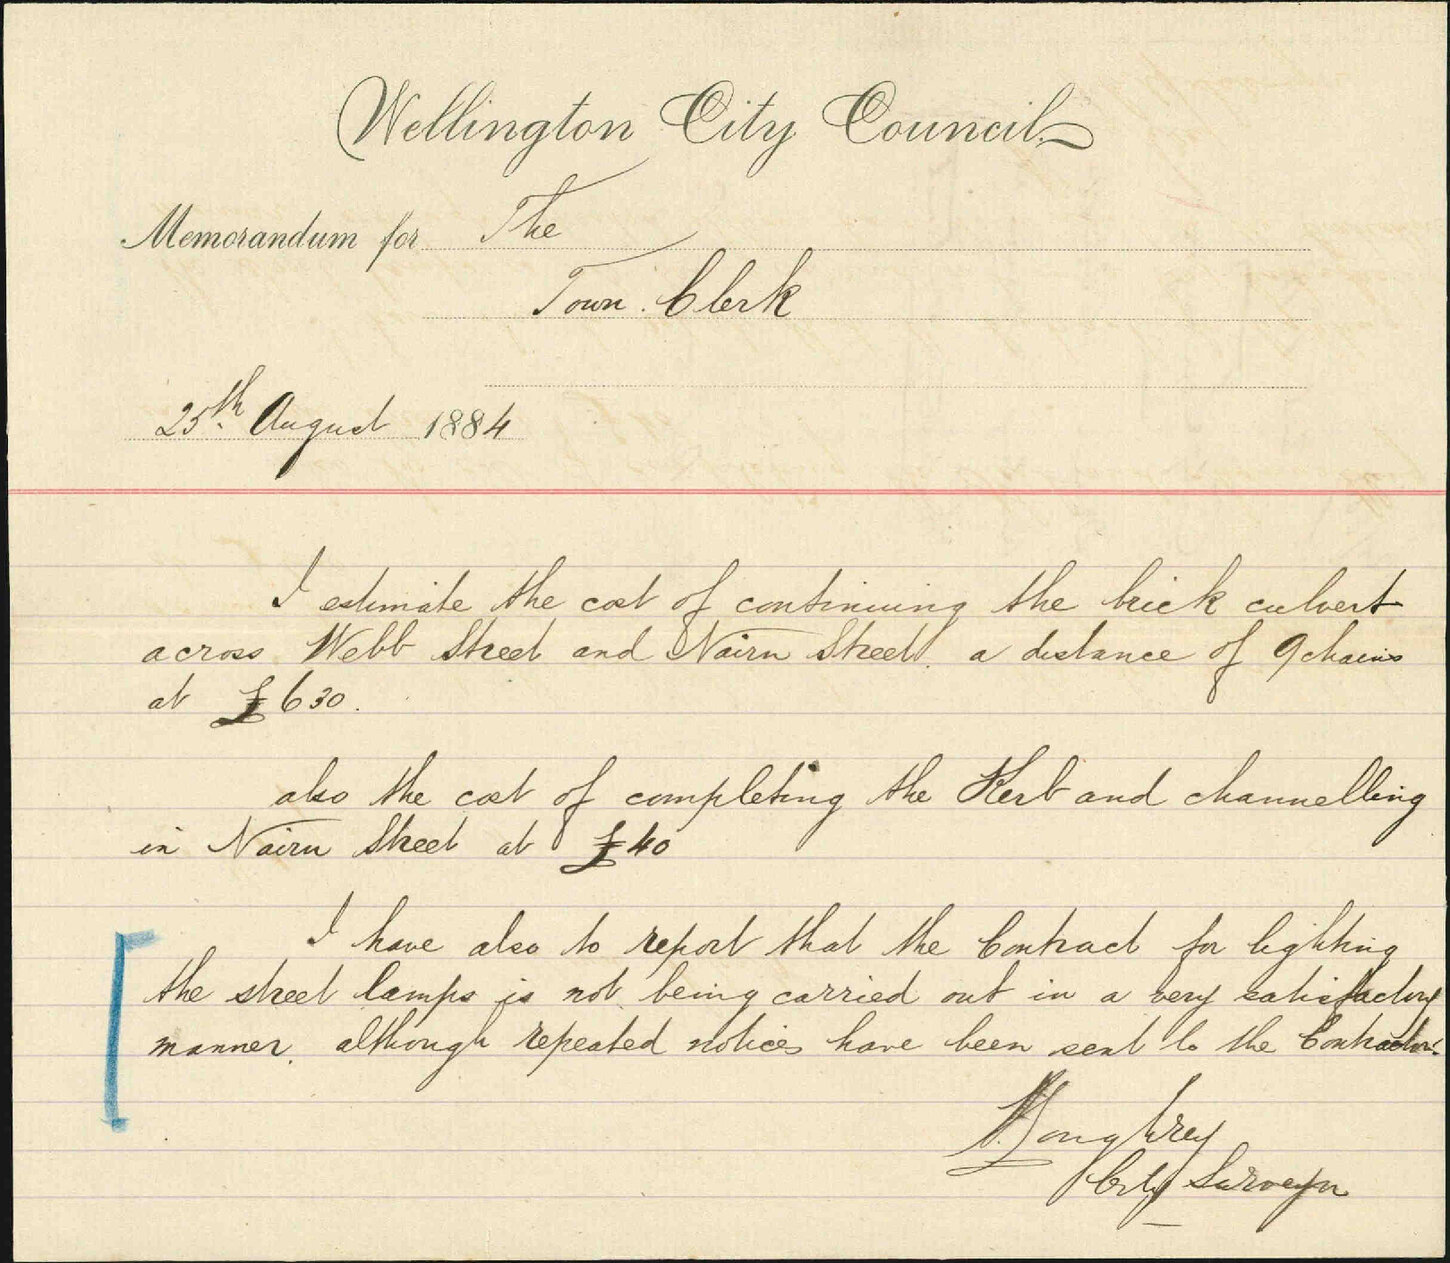 Wellington City Council
Memorandum for The
Town Clerk
25th August 1884
I estimate the cost of continuing the brick culvert
across Webb Street and Nairn Street a distance of 9 chains
at £630.
also the cost of completing the Kerb and channelling
in Nairn Street at £40
I have also to report that the Contract for lighting
the street lamps is not being carried out in a very satisfactory
manner, although repeated notices have been sent to the Contractor.
Loughrey
City Surveyor